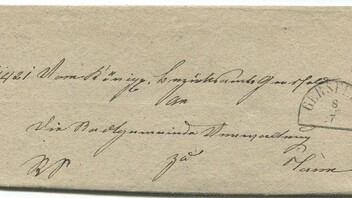 1421 Vom Königl. Bezirksamte Gersfeld
an
die Stadtgemeinde Verwaltung
RS zu Tann
GERSF
8
7